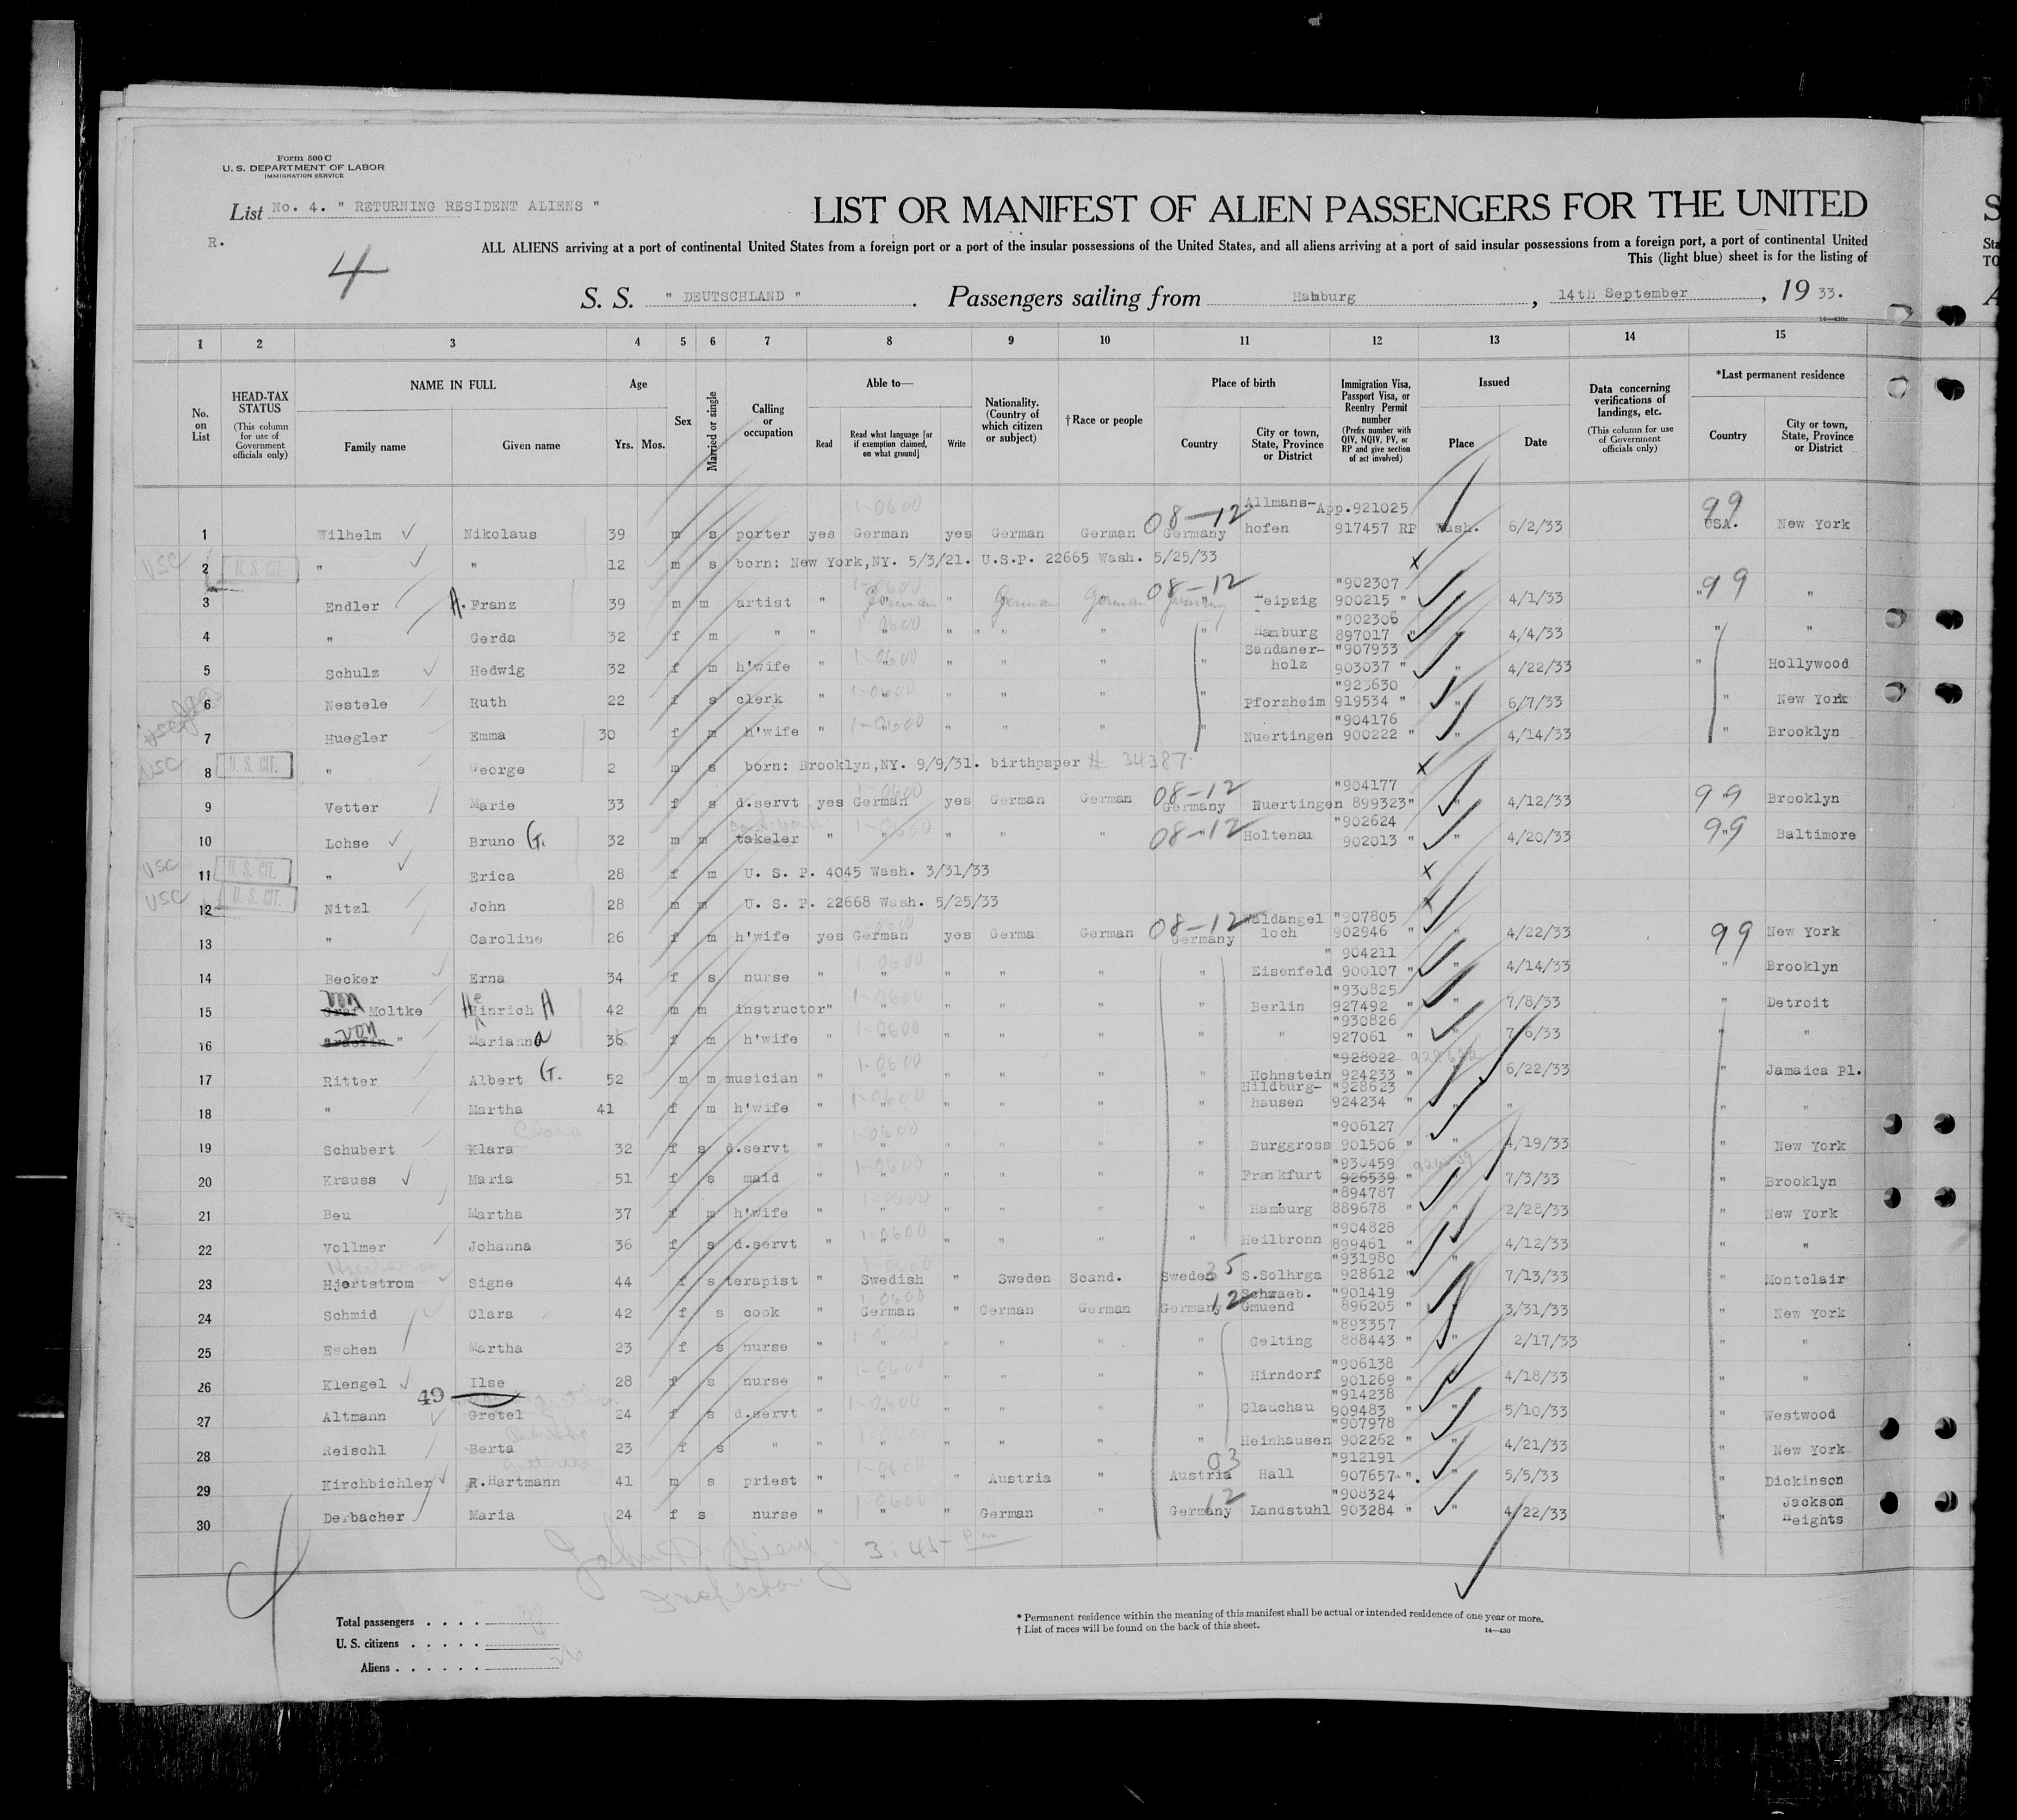 Form 500 C
U. S. DEPARTMENT OF LABOR
IMMIGRATION SERVICE
List No. 4. " RETURNING RESIDENT ALIENS "
R.
4
LIST OR MANIFEST OF ALIEN PASSENGERS FOR THE UNITED
ALL ALIENS arriving at a port of continental United States from a foreign port or a port of the insular possessions of the United States, and all aliens arriving at a port of said insular possessions from a foreign port, a port of continental United
This (light blue) sheet is for the listing of
S. S. " DEUTSCHLAND " . Passengers sailing from Hamburg , 14th September , 19 33.
1 2 3 4 5 6 7 8 9 10 11 12 13 14 15
No. on List
HEAD-TAX STATUS (This column for use of Government officials only)
NAME IN FULL Family name Given name
Age Yrs. Mos.
Sex
Married or single
Calling or occupation
Able to— Read Read what language [or if exemption claimed, on what ground] Write
Nationality. (Country of which citizen or subject)
† Race or people
Place of birth Country City or town, State, Province or District
Immigration Visa, Passport Visa, or Reentry Permit number (Prefix number with QIV, NQIV, PV, or RP and give section of act involved)
Issued Place Date
Data concerning verifications of landings, etc. (This column for use of Government officials only)
*Last permanent residence Country City or town, State, Province or District
1 Wilhelm Nikolaus 39 m s porter yes German yes German German 08-12 Germany Allmans-hofen App.921025 917457 RP Wash. 6/2/33 99 USA. New York
USC 2 U. S. CIT. " " 12 m s born: New York,NY. 5/3/21. U.S.P. 22665 Wash. 5/25/33
3 Endler A. Franz 39 m m artist " German " German German 08-12 Germany Leipzig "902307 900215 " 4/1/33 " 99 "
4 " Gerda 32 f m " " " " " " " Hamburg "902306 897017 " 4/4/33 " "
5 Schulz Hedwig 32 f m h'wife " " " " " " Sandaner-holz "907933 903037 " " 4/22/33 " Hollywood
6 Nestele Ruth 22 f s clerk " " " " " " Pforzheim "923630 919534 " " 6/7/33 " New York
7 Huegler Emma 30 f m h'wife " " " " " " Nuertingen "904176 900222 " " 4/14/33 " Brooklyn
USC 8 U. S. CIT. " George 2 m s born: Brooklyn,NY. 9/9/31. birthpaper # 34387
9 Vetter Marie 33 f s d.servt yes German yes German German 08-12 Germany Nuertingen "904177 899323" " 4/12/33 99 Brooklyn
10 Lohse Bruno G. 32 m m takeler " " " " " 08-12 Holtenau "902624 902013 " " 4/20/33 99 Baltimore
USC 11 U. S. CIT. " Erica 28 f m U. S. P. 4045 Wash. 3/31/33
USC 12 U. S. CIT. Nitzl John 28 m m U. S. P. 22668 Wash. 5/25/33
13 " Caroline 26 f m h'wife yes German yes Germa German 08-12 Germany Waldangel loch "907805 902946 " " 4/22/33 99 New York
14 Becker Erna 34 f s nurse " " " " " " Eisenfeld " 904211 900107 " " 4/14/33 " Brooklyn
15 von Graf Moltke Heinrich A 42 m m instructor " " " " " " Berlin "930825 927492 " " 7/8/33 " Detroit
16 von Graefin " Marianna 36 f m h'wife " " " " " " " "930826 927061 " " 7/6/33 " "
17 Ritter Albert G. 52 m m musician " " " " " " Hohnstein "928022 924233 " " 6/22/33 " Jamaica Pl.
18 " Martha 41 f m h'wife " " " " " " Hildburg-hausen "928623 924234 " " " " "
19 Schubert Klara Clara 32 f s d.servt " " " " " " Burggross "906127 901506 " " 4/19/33 " New York
20 Krauss Maria 51 f s maid " " " " " " Frankfurt "930459 926539 " " 7/3/33 " Brooklyn
21 Beu Martha 37 f m h'wife " " " " " " Hamburg "894787 889678 " " 2/28/33 " New York
22 Vollmer Johanna 36 f s d.servt " " " " " " Heilbronn "904828 899461 " " 4/12/33 " "
23 Hjertstrom Signe 44 f s terapist " Swedish " Sweden Scand. Sweden 35 S.Solhrga "931980 928612 " " 7/13/33 " Montclair
24 Schmid Clara 42 f s cook " German " German German Germany 12 Schwaeb. Gmuend "901419 896205 " " 3/31/33 " New York
25 Eschen Martha 23 f s nurse " " " " " " Gelting "893357 888443 " " 2/17/33 " "
26 Klengel Ilse 28 f s nurse " " " " " " Hirndorf "906138 901269 " " 4/18/33 " "
49
27 Altmann Gretel 24 f s d.servt " " " " " " Glauchau "914238 909483 " " 5/10/33 " Westwood
28 Reischl Berta 23 f s " " " " " " " Heinhausen "907978 902262 " " 4/21/33 " New York
29 Kirchbichler R.Hartmann 41 m s priest " " " Austria " 03 Austria Hall "912191 907657 " " 5/5/33 " Dickinson
30 Derbacher Maria 24 f s nurse " " " German " 12 Germany Landstuhl "908324 903284 " " 4/22/33 " Jackson Heights
3:45 Pm
Inspector
Total passengers . . . .
U. S. citizens . . . . .
Aliens . . . . . .
* Permanent residence within the meaning of this manifest shall be actual or intended residence of one year or more.
† List of races will be found on the back of this sheet.
14—430